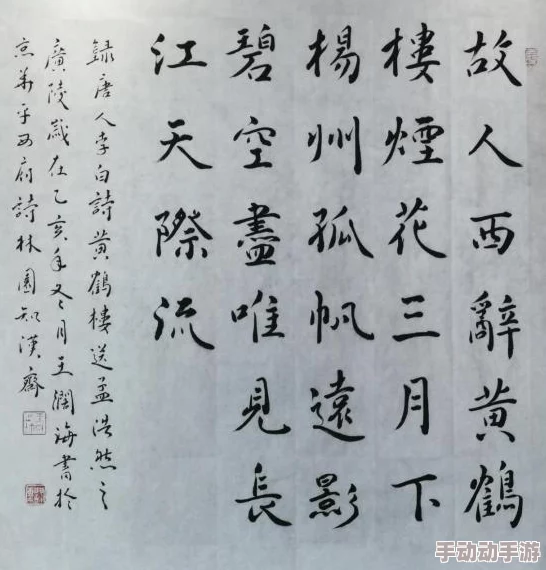 故人西辭黃鶴
樓煙花三月下
楊州孤帆遠影
碧空盡唯見長
江天際流
錄唐人李白詩黃鶴樓送孟浩然之
廣陵歲在乙亥年又月王闊海書於
京華平西府詩林園知漢齋
手动动手游